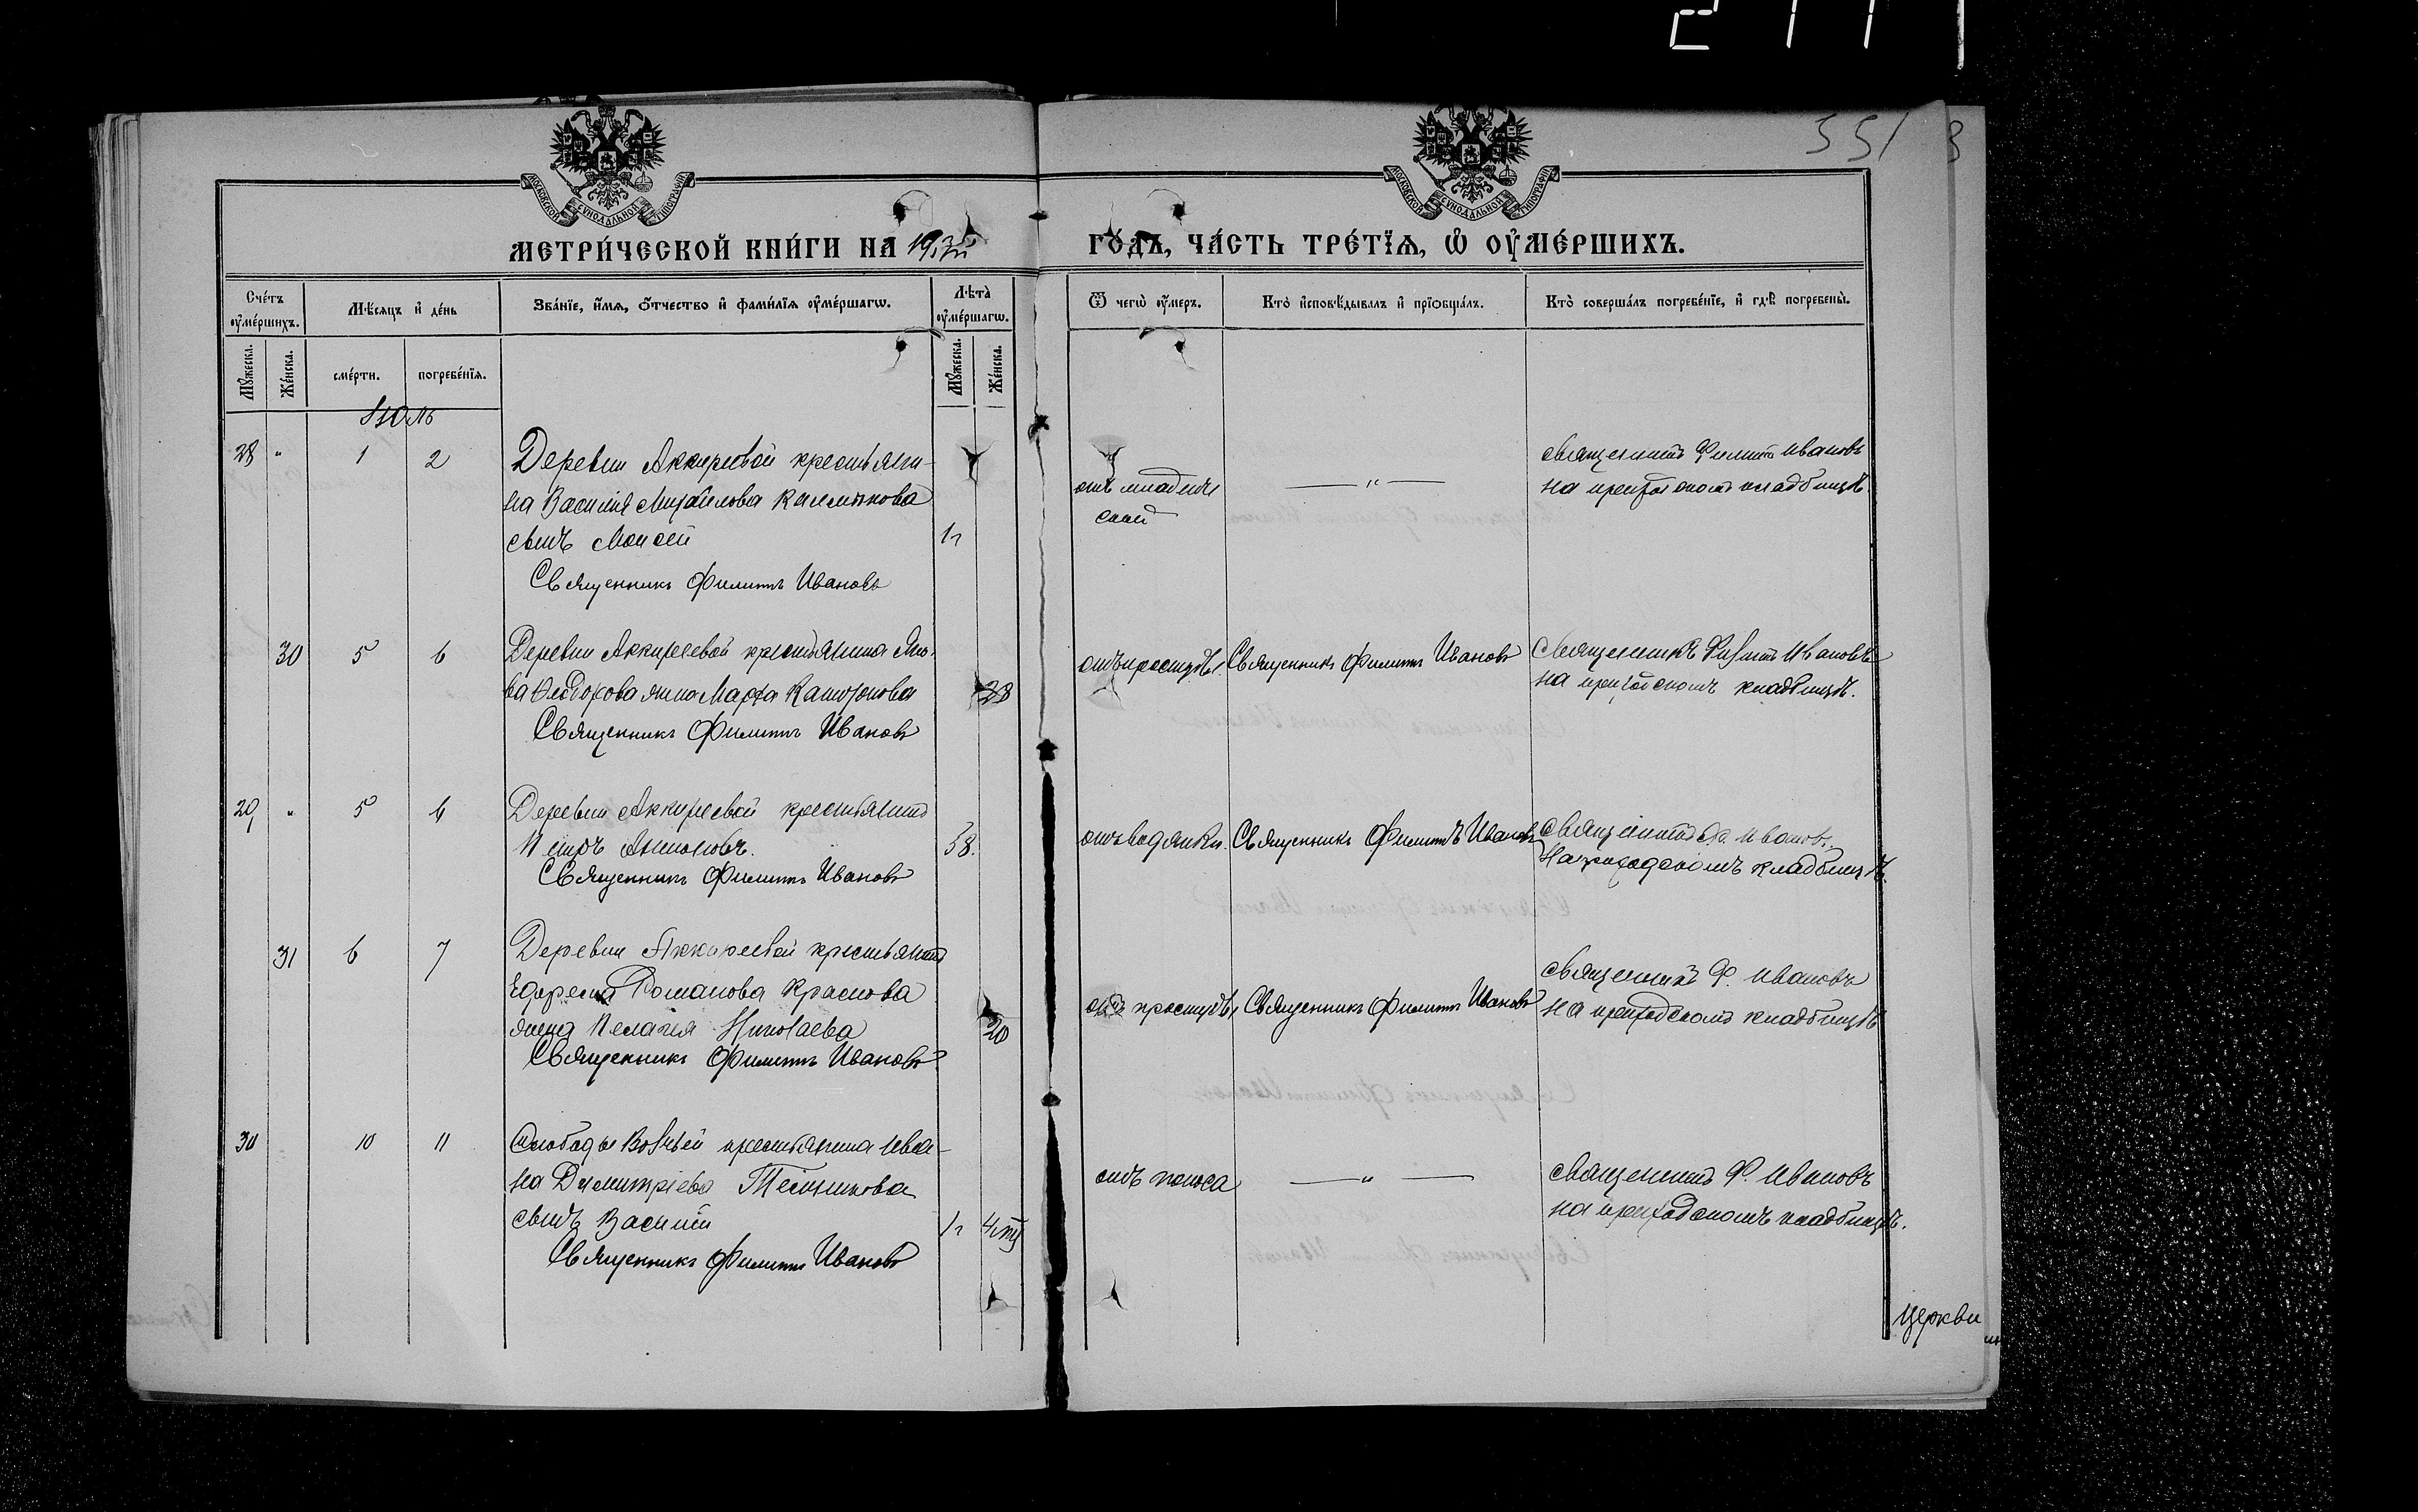 351
МОСКОВСКОЙ СѴНОДАЛЬНОЙ ТИПОГРАФІИ
МОСКОВСКОЙ СѴНОДАЛЬНОЙ ТИПОГРАФІИ
МЕТРИ́ЧЕСКОЙ КНИ́ГИ НА
ГО́ДЪ, ЧА́СТЬ ТРЕ́ТЇѦ, Ѡ҆ ОУ҆МЕ́РШИХЪ.
Сче́тъ оу҆ме́ршихъ.
Мѣ́сяцъ и҆ де́нь
Зва́нїе, и҆́мѧ, ѻ҆́тчество и҆ фами́лїѧ оу҆ме́ршагѡ.
Лѣ́та̀ оу҆ме́ршагѡ.
Ѿ чегѡ̀ оу҆́меръ.
Кто̀ и҆сповѣ́дывалъ и҆ прїѻбща́лъ.
Кто̀ соверша́лъ погребе́нїе, и҆ гдѣ̀ погребены̀.
Мꙋ́жеска.
Же́нска.
сме́рти.
погребе́нїѧ.
Мꙋ́жеска.
Же́нска.
Іюль
28 " 1 2 Деревни Аккиреевой крестьяни-
на Василія Михайлова Калмыкова
сынъ Моисей 1г
Священникъ Филиппъ Ивановъ
отъ младенче
ской
— " —
Священникъ Филиппъ Ивановъ
на приходскомъ кладбищѣ.
30 5 6 Деревни Аккиреевой крестьянина
Ѳеодорова жена Марѳа
Священникъ Филиппъ Ивановъ
отъ простуды. Священникъ Филиппъ Ивановъ
Священникъ Филиппъ Ивановъ
на приходскомъ кладбищѣ.
29 " 5 6 Деревни Аккиреевой крестьянинъ
Петръ Антоновъ. 58.
Священникъ Филиппъ Ивановъ
отъ водянки. Священникъ Филиппъ Ивановъ
Священникъ Ф. Ивановъ.
На приходскомъ кладбищѣ.
31 6 7 Деревни Аккиреевой крестьянина
Ефрема Романова Краснова
жена Пелагія Николаева 20
Священникъ Филиппъ Ивановъ
отъ простуды Священникъ Филиппъ Ивановъ
Священникъ Ф. Ивановъ
на приходскомъ кладбищѣ
30 10 11 Слободы Волчьей крестьянина Ива-
на Димитріева
сынъ Василій 1г
Священникъ Филиппъ Ивановъ
отъ поноса
— " —
Священникъ Ф. Ивановъ
на приходскомъ кладбищѣ.
Церкви